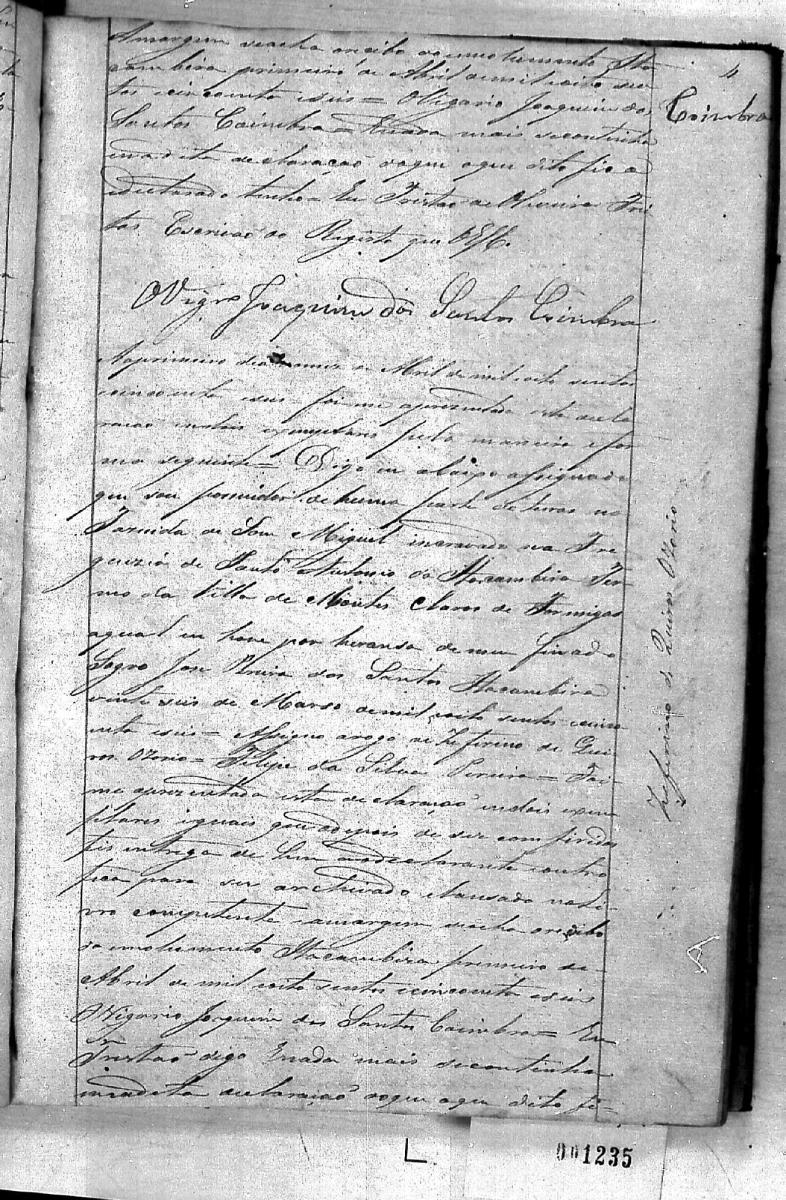 4
Coimbra
Amargem seacha orecibo do emolumento Ita
cambira primeiro de Abril de mil oito sen
tos cincoenta eseis = OVigario Joaquim dos
Santos Coimbra = Enada mais secontinha
inadita declaração doque aqui dito fica
edeclarado tenho = Eu Tristão de Oliveira Frei
tas Escrivão do Registo que
OVigro Joaquim dos Santos Coimbra
Aoprimeiro dia domes de Abril de mil oito sentos
cincoenta eseis foi me aprezentada esta decla
ração indois exemplares pela maneira efor
ma seguinte = Digo eu abaixo assignado
que sou possuidor dehuma parte de terras na
Fazenda de Sam Miguel incravada na Fre
guezia de Santo Antonio da Itacambira Ter
mo da Villa de Montes Claros de Formigas
aqual eu houve por heransa de meu finado
Sogro Jose Pereira dos Santos Itacambira
vinte seis de Marso demil oito sentos cinco
enta eseis = Assigno arogo de Zeferino de Quei
ros Ozorio = Felipe da Silva Pereira = Foi
me aprezentada esta declaração indois exem
plares iguais que adepois de ser comfiridos
fis intrega de hum aodeclarante eoutro
fica para ser archivado elansado noLi
vro competente eamargem seacha orecibo
do emolumento Itacambira primeiro de
Abril de mil oito sentos ecincoenta eseis
OVigario Joaquim dos Santos Coimbra = Eu
Tristão digo Enada mais secontinha
inadita declaração doque aqui dito fi-
Zeferino de Queiros Ozorio
001235